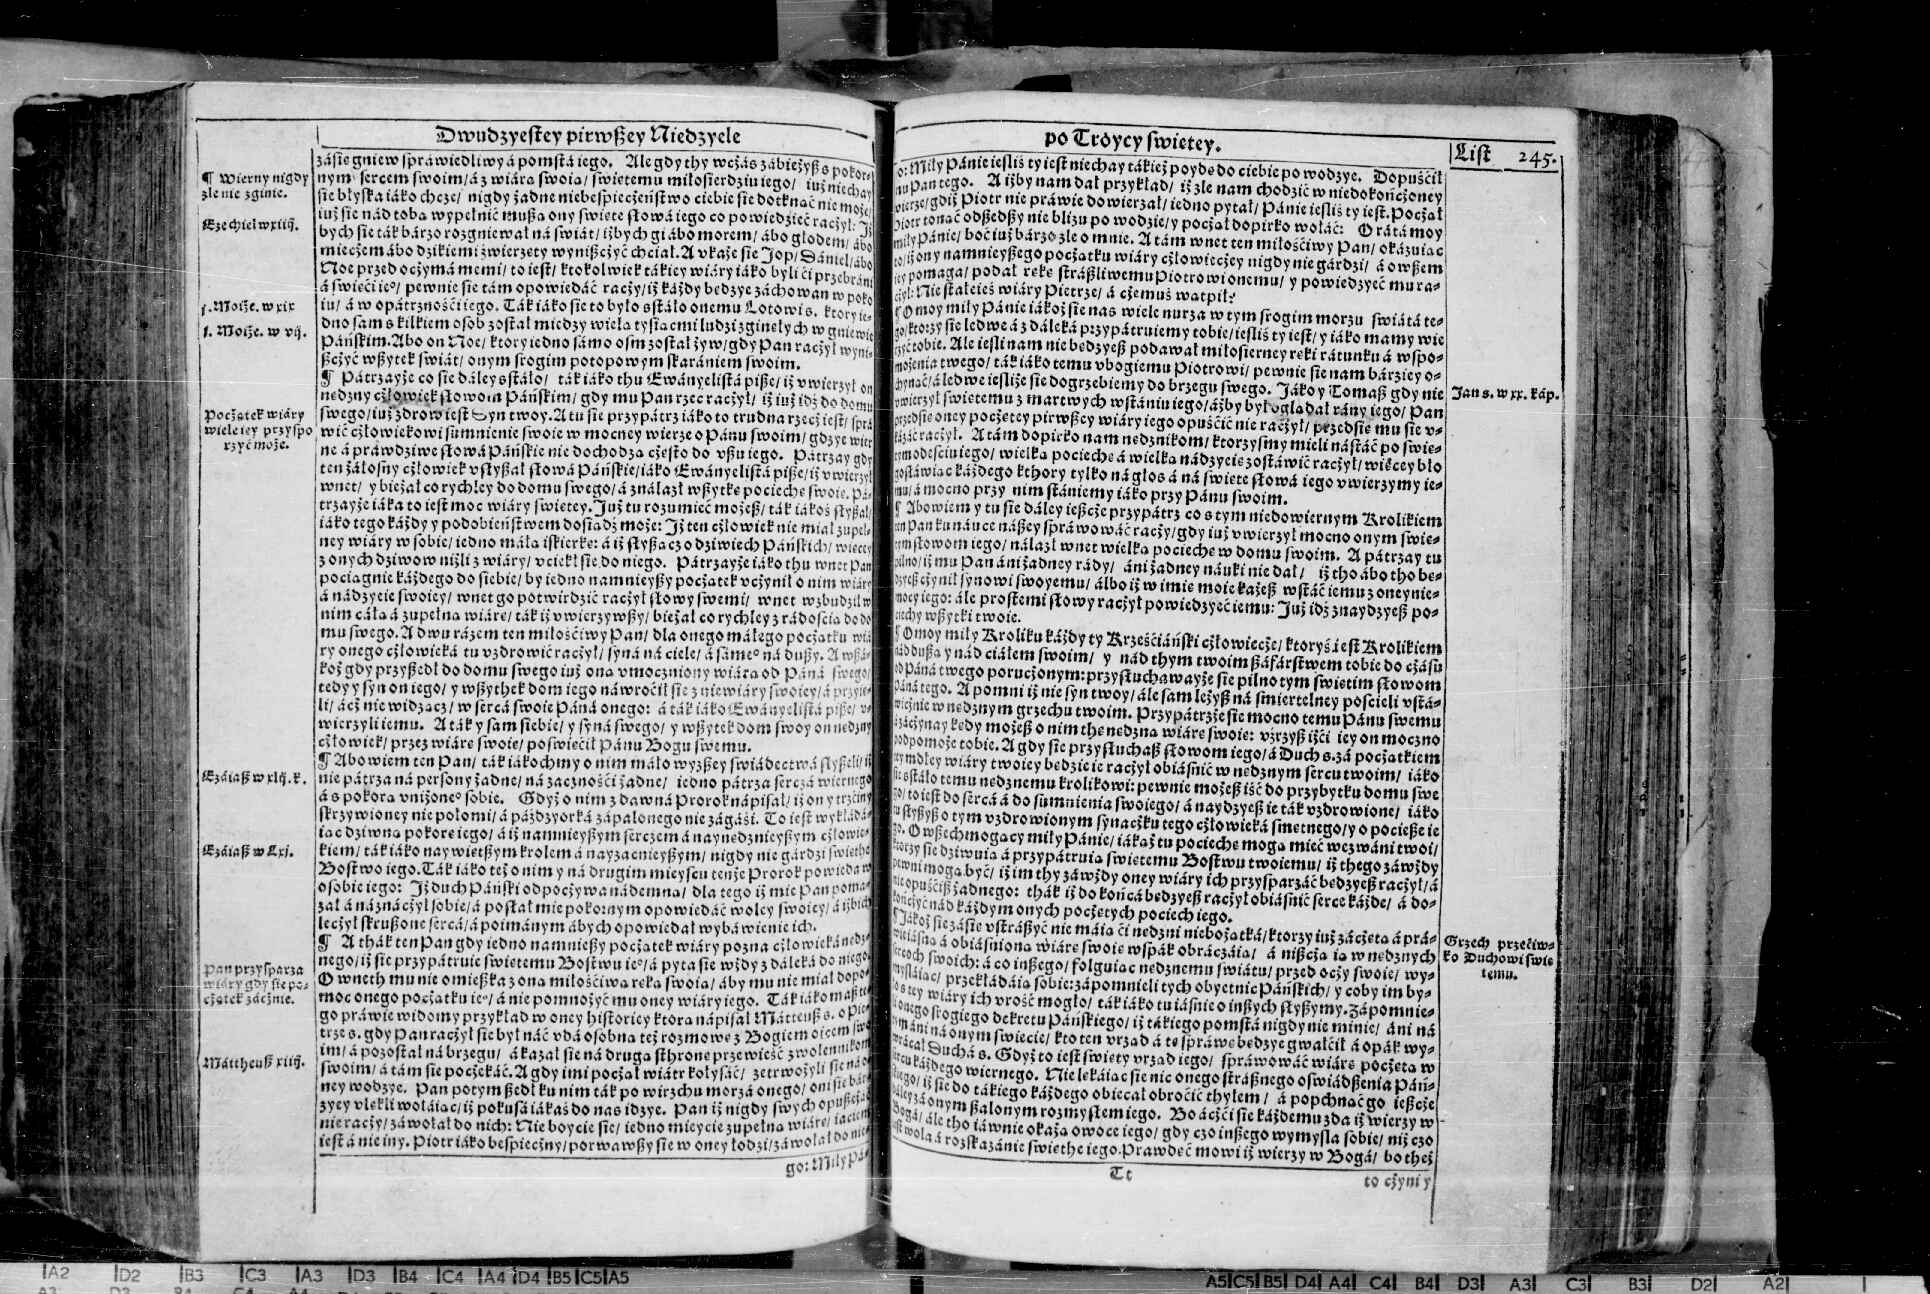 Dwudzyestey pirwßey Niedzyele
¶ Wierny nigdy
zle nie zginie.
Ezechiel w xiiij.
j. Moiże. w xix
j. Moiże. w vij.
Początek wiáry
wiele iey przyspo
rzyć może.
Ezáiaß w xlij. k.
Ezáiaß w Lxj.
Pan przysparza
wiáry gdy sie po-
czątek zácznie.
Máttheuß xiiij.
zásie gniew spráwiedliwy á pomstá iego. Ale gdy thy wczás zábieżyß s pokor-
nym sercem swoim/ á z wiárą swoią/ świętemu miłosierdziu iego/ iuż niechay
sie błyska iáko chcze/ nigdy żadne niebespieczeństwo ciebie sie dotknąć nie może/
iuż sie nád tobą wypełnić mußą ony święte słowá iego co powiedzieć raczył: Iż
bych sie ták bárzo rozgniewał ná świát/ iżbych gi ábo morem/ ábo głodem/ ábo
mieczem ábo dzikiemi źwierzęty wynißczyć chciał. A vkaże sie Jop/ Dániel/ ábo
Noe przed oczymá memi/ to iest/ ktokolwiek tákiey wiáry iáko byli ci przebráni
á święci ieº/ pewnie sie tám opowiedáć raczy/ iż káżdy bedzye záchowan w poko
iu/ á w opátrzności iego. Ták iáko sie to było sstáło onemu Lotowi s. ktory ie-
dno sam s kilkiem osob został miedzy wielą tysiącmi ludzi zginęłych w gniewie
Páńskim. Abo on Noe/ ktory iedno sámo osm został żyw/ gdy Pan raczył wyni-
ßczyć wßytek świát/ onym srogim potopowym skaraniem swoim.
¶ Pátrzayże co sie dáley sstáło/ ták iáko thu Ewányelistá piße/ iż vwierzył on
nędzny człowiek słowom Páńskim/ gdy mu Pan rzec raczył/ iż iuż idź do domu
swego/ iuż zdrow iest Syn twoy. A tu sie przypátrz iáko to trudna rzecż iest/ sprá
wić człowiekowi sumnienie swoie w mocney wierze o Pánu swoim/ gdzye wier
ne á prawdziwe słowá Páńskie nie dochodzą często do vßu iego. Pátrzay gdy
ten żáłosny człowiek vsłyßał słowá Páńskie/ iáko Ewányelistá piße/ iż vwierzył
wnet/ y bieżał co rychley do domu swego/ á ználazł wßytkę pociechę swoię. Pá-
trzayże iáka to iest moc wiáry świętey. Już tu rozumieć możeß/ ták iákoś słyßał/
iáko tego káżdy y podobieństwem dosiądz może: Iż ten człowiek nie miał zupeł-
ney wiáry w sobie/ iedno máłą iskierkę: á iż słyßacz o dziwiech Páńskich/ więcey
z onych dziwow niżli z wiáry/ vciekł sie do niego. Pátrzayże iáko thu wnet Pan
pociągnie káżdego do siebie/ by iedno namnieyßy początek vczynił o nim wiáry
á nádzyeie swoiey/ wnet go potwirdzić raczył słowy swemi/ wnet wzbudził w
nim cáłą á zupełną wiárę/ ták iż vwierzywßy/ bieżał co rychley z rádością do do
mu swego. A dwu rázem ten miłościwy Pan/ dla onego máłego początku wiá
ry onego człowieká tu vzdrowić raczył/ syná ná ciele/ á sámeº ná dußy. A wßá-
koż gdy przyßedł do domu swego iuż oną vmoczniony wiárą od Páná swego/
tedy y syn on iego/ y wßythek dom iego náwrocił sie z niewiáry swoiey/ á przyię-
li/ ácż nie widzącz/ w sercá swoie Páná onego: á ták iáko Ewányelistá piße/ v-
wierzyli iemu. A ták y sam siebie/ y syná swego/ y wßytek dom swoy on nędzny
człowiek/ przez wiárę swoię/ poświęcił Pánu Bogu swemu.
¶ Abowiem ten Pan/ ták iákochmy o nim máło wyżßey świádectwá słyßeli/ iż
nie pátrza ná persony żadne/ ná zacznośći żadne/ iedno pátrza sercza wiernego
á s pokorą vniżoneº sobie. Gdyż o nim z dawná Prorok nápisał/ iż on y trzciny
skrzywioney nie połomi/ á páździorká zápalonego nie zágási. To iest wykłádá-
iąc dziwną pokorę iego/ á iż namnieyßym serczem á naynędznieyßym człowie-
kiem/ ták iáko naywiętßym krolem á nayzacnieyßym/ nigdy nie gárdzi święthe
Bostwo iego. Ták iáko też o nim y ná drugim mieyscu tenże Prorok powiedá w
osobie iego: Iż duch Páński odpoczywa nádemną/ dla tego iż mię Pan pomá-
zał á náznáczył sobie/ á posłał mię pokornym opowiedáć wolęy swoiey/ á iżbich
leczył skrußone sercá/ á poimánym ábych opowiedał wybáwienie ich.
¶ A thák ten Pan gdy iedno namnießy początek wiáry pozna człowieká nędz-
nego/ iż sie przypátruie świętemu Bostwu ieº/ á pyta sie wżdy z dáleká do niego.
O wneth mu nie omießka z oną miłościwą ręką swoią/ áby mu nie miał dopo-
moc onego początku ieº/ á nie pomnożyć mu oney wiáry iego. Ták iáko maß te-
go práwie widomy przykład w oney historiey ktorą nápisał Mátteuß s. o Pie-
trze s. gdy Pan raczył sie był náć vdá osobną też rozmowę z Bogiem oicem swo
im/ á pozostał ná brzegu/ á kazał sie ná drugą sthronę przewieść zwolennikom
swoim/ á tám sie poczekáć. A gdy imi począł wiátr kołysáć/ zetrwożyli sie ná o-
ney wodzye. Pan potym ßedł ku nim ták po wirzchu morzá onego/ oni sie bár-
zyey vlękli wołáiąc/ iż pokusá iákaś do nas idzye. Pan iż nigdy swych opußczáć
nie raczy/ záwołał do nich: Nie boycie sie/ iedno mieycie zupełną wiárę/ iaciem
iest á nie iny. Piotr iáko bespieczny/ porwawßy sie w oney łodzi/ záwołał do nie-
go: Miły Pá-
po Troycy świętey.
List 245.
go: Miły Pánie iesliś ty iest niechay tákież poydę do ciebie po wodzye. Dopuścił
mu Pan tego. A iżby nam dał przykład/ iż zle nam chodzić w niedokończoney
wierze/ gdiż Piotr nie práwie dowierzał/ iedno pytał/ Pánie iesliś ty iest. Począł
Piotr tonąć odßedßy nie blizu po wodzie/ y począł dopirko wołáć: O rátá moy
miły Pánie/ boć iuż bárzo zle o mnie. A tám wnet ten miłościwy Pan/ okázuiąc
to/ iż ony namnieyßego początku wiáry człowieczey nigdy nie gárdzi/ á owßem
iey pomaga/ podał rękę stráßliwemu Piotrowi onemu/ y powiedzyeć mu ra-
czył: Nie státeieś wiáry Pietrze/ á czemuś wątpił?
¶ O moy miły Pánie iákoż sie nas wiele nurza w tym srogim morzu świátá te-
go/ ktorzy sie ledwe á z dáleká przypátruiemy tobie/ iesliś ty iest/ y iáko mamy wie
rzyć tobie. Ale iesli nam nie będzyeß podawał miłosierney ręki rátunku á wspo-
możenia twego/ ták iáko temu vbogiemu Piotrowi/ pewnie sie nam bárziey o-
chynáć/ á ledwe iesliże sie dogrzebiemy do brzegu swego. Jáko y Tomaß gdy nie
vwierzył świętemu z martwych wstániu iego/ áżby był oglądał rány iego/ Pan
przedsie oney poczętey pirwßey wiáry iego opuścić nie raczył/ przedsie mu sie v-
kázáć raczył. A tám dopirko nam nędznikom/ ktorzysmy mieli nástáć po świę-
tym odeściu iego/ wielką pociechę á wielką nádzyeię zostáwić raczył/ więcey bło
gosłáwiąc káżdego kthory tylko ná głos á ná święte słowá iego vwierzymy ie-
mu/ á mocno przy nim stániemy iáko przy Pánu swoim.
¶ Abowiem y tu sie dáley ießcże przypátrz co s tym niedowiernym Krolikiem
ten Pan ku náuce náßey spráwowáć raczy/ gdy iuż vwierzył mocno onym świę-
tym słowom iego/ nálazł wnet wielką pociechę w domu swoim. A pátrzay tu
pilno/ iż mu Pan áni żadney rády/ áni żadney náuki nie dał/ iż tho ábo tho bę-
dzyeß czynił synowi swoyemu/ álbo iż w imię moie każeß wstáć iemu z oney nie-
mocy iego: ále prostemi słowy raczył powiedzyeć iemu: Już idź znaydzyeß po-
ciechy wßytki twoie.
¶ O moy miły Kroliku káżdy ty Krześciáński człowiecze/ ktoryś iest Krolikiem
nád dußą y nád ciáłem swoim/ y nád thym twoim ßáfárstwem tobie do czásu
od Páná twego poruczonym: przysłuchawayże sie pilno tym świętim słowom
Páná tego. A pomni iż nie syn twoy/ ále sam leżyß ná śmiertelney pościeli vstá-
wicżnie w nędznym grzechu twoim. Przypátrzże sie mocno temu Pánu swemu
á záczynay kedy możeß o nim the nędzną wiárę swoię: vzrzyß iżci iey on mocno
podpomoże tobie. A gdy sie przysłuchaß słowom iego/ á Duch s. zá początkiem
oney mdłey wiáry twoiey będzie ie raczył obiáśnić w nędznym sercu twoim/ iáko
sie sstáło temu nędznemu krolikowi: pewnie możeß iść do przybytku domu swe
go/ to iest do sercá á do sumnienia swoiego/ á naydzyeß ie ták vzdrowione/ iáko
tu słyßyß o tym vzdrowionym synaczku tego człowieká smętnego/ y o pocieße ie
go. O wßechmogący miły Pánie/ iákąż tu pociechę mogą mieć wezwáni twoi/
ktorzy sie dziwuią á przypátruią świętemu Bostwu twoiemu/ iż thego záwżdy
pewni mogą być/ iż im thy záwżdy oney wiáry ich przysparzáć będzyeß raczył/ á
nie opuściß żadnego: thák iż do końcá będzyeß raczył obiáśnić serce káżde/ á do-
kończyć nád káżdym onych poczętych pociech iego.
¶ Jákoż sie zásie vstráßyć nie máią ci nędzni niebożątká/ ktorzy iuż záczętą á prá-
wie iásną á obiáśnioną wiárę swoię wspák obráczáią/ á nißczą ią w nędznych
sercoch swoich: á co inßego/ folguiąc nędznemu świátu/ przed oczy swoie/ wy-
myśláiąc/ przekłádáią sobie: zápomnieli tych obyetnic Páńskich/ y coby im by-
ło s tey wiáry ich vrość mogło/ ták iáko tu iáśnie o inßych słyßymy. Zápomnie-
li onego srogiego dekretu Páńskiego/ iż tákiego pomstá nigdy nie minie/ áni ná
tym áni ná onym świecie/ kto ten vrząd á tę spráwę będzye gwałcił á opák wy-
wracał Duchá s. Gdyż to iest święty vrząd iego/ spráwowáć wiárę poczętą w
sercu káżdego wiernego. Nie lękáiąc sie nic onego stráßnego oświádßenia Páń-
skiego/ iż sie do tákiego káżdego obiecał obrocić thyłem/ á popchnąć go ießcże
dáley zá onym ßalonym rozmysłem iego. Bo áczci sie káżdemu zda iż wierzy w
Bogá/ ále tho iáwnie okażą owoce iego/ gdy czo inßego wymyśla sobie/ niż czo
iest wola á rozkazánie święthe iego. Prawdeć mowi iż wierzy w Bogá/ bo theż
Tt
to czyni y
Jan s. w xx. káp.
Grzech przeciw-
ko Duchowi swię
temu.